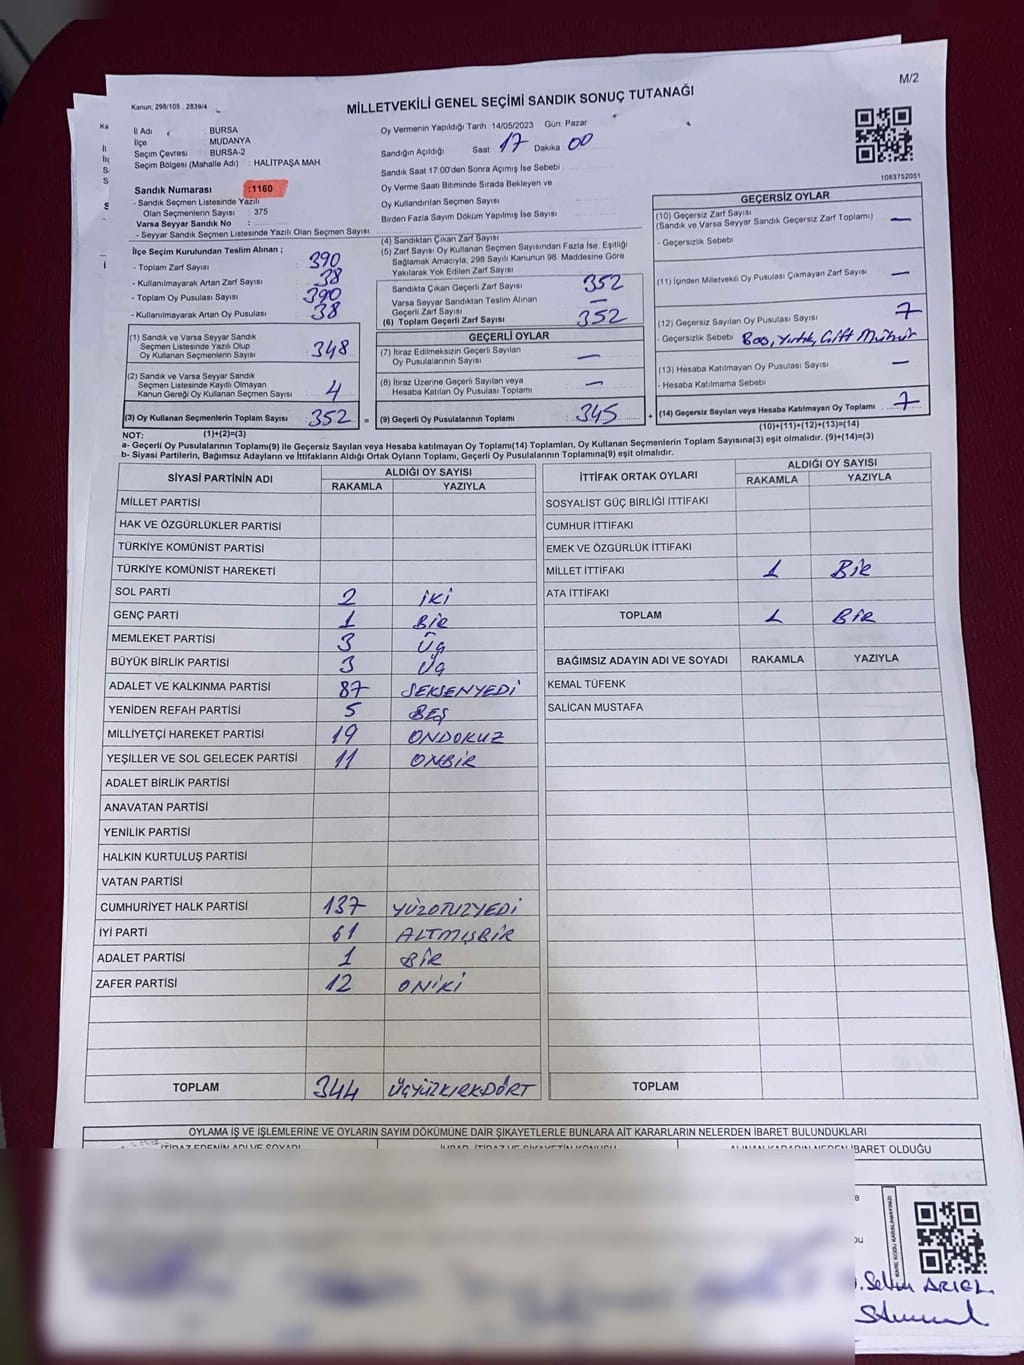 M/2
Kanun; 298/105 , 2839/4
MİLLETVEKİLİ GENEL SEÇİMİ SANDIK SONUÇ TUTANAĞI
İl Adı : BURSA
İlçe : MUDANYA
Seçim Çevresi : BURSA-2
Seçim Bölgesi (Mahalle Adı) : HALİTPAŞA MAH.
Sandık Numarası :1160
- Sandık Seçmen Listesinde Yazılı
Olan Seçmenlerin Sayısı : 375
Varsa Seyyar Sandık No :
- Seyyar Seçmen Sandık Listesinde Yazılı Olan Seçmen Sayısı:
Oy Vermenin Yapıldığı Tarih :14/05/2023 Gün: Pazar
Sandığın Açıldığı Saat 17 Dakika 00
Sandık Saat 17:00'den Sonra Açımış İse Sebebi :
Oy Verme Saati Bitiminde Sırada Bekleyen ve
Oy Kullandırılan Seçmen Sayısı :
Birden Fazla Sayım Döküm Yapılmış İse Sayısı :
1083752051
İlçe Seçim Kurulundan Teslim Alınan ;
- Toplam Zarf Sayısı 390
- Kullanılmayarak Artan Zarf Sayısı 38
- Toplam Oy Pusulası Sayısı 390
- Kullanılmayarak Artan Oy Pusulası 38
(1) Sandık ve Varsa Seyyar Sandık
Seçmen Listesinde Yazılı Olup
Oy Kullanan Seçmenlerin Sayısı 348
(2) Sandık ve Varsa Seyyar Sandık
Seçmen Listesinde Kayıtlı Olmayan
Kanun Gereği Oy Kullanan Seçmen Sayısı 4
(3) Oy Kullanan Seçmenlerin Toplam Sayısı 352 =
(1)+(2)=(3)
(4) Sandıktan Çıkan Zarf Sayısı
(5) Zarf Sayısı Oy Kullanan Seçmen Sayısından Fazla İse, Eşitliği
Sağlamak Amacıyla, 298 Sayılı Kanunun 98. Maddesine Göre
Yakılarak Yok Edilen Zarf Sayısı
Sandıkta Çıkan Geçerli Zarf Sayısı 352
Varsa Seyyar Sandıktan Teslim Alınan
Geçerli Zarf Sayısı —
(6) Toplam Geçerli Zarf Sayısı 352
GEÇERLİ OYLAR
(7) İtiraz Edilmeksizin Geçerli Sayılan
Oy Pusulalarının Sayısı —
(8) İtiraz Üzerine Geçerli Sayılan veya
Hesaba Katılan Oy Pusulası Toplamı —
(9) Geçerli Oy Pusulalarının Toplamı 345 +
GEÇERSİZ OYLAR
(10) Geçersiz Zarf Sayısı
(Sandık ve Varsa Seyyar Sandık Geçersiz Zarf Toplamı) —
- Geçersizlik Sebebi
(11) İçinden Milletvekili Oy Pusulası Çıkmayan Zarf Sayısı —
(12) Geçersiz Sayılan Oy Pusulası Sayısı 7
- Geçersizlik Sebebi Boş, Yırtık, Çift Mühür
(13) Hesaba Katılmayan Oy Pusulası Sayısı —
- Hesaba Katılmama Sebebi
(14) Geçersiz Sayılan veya Hesaba Katılmayan Oy Toplamı 7
(10)+(11)+(12)+(13)=(14)
NOT:
a- Geçerli Oy Pusulalarının Toplamı(9) ile Geçersiz Sayılan veya Hesaba katılmayan Oy Toplamı(14) Toplamları, Oy Kullanan Seçmenlerin Toplam Sayısına(3) eşit olmalıdır. (9)+(14)=(3)
b- Siyasi Partilerin, Bağımsız Adayların ve İttifakların Aldığı Ortak Oyların Toplamı, Geçerli Oy Pusulalarının Toplamına(9) eşit olmalıdır.
SİYASİ PARTİNİN ADI ALDIĞI OY SAYISI
RAKAMLA YAZIYLA
MİLLET PARTİSİ
HAK VE ÖZGÜRLÜKLER PARTİSİ
TÜRKİYE KOMÜNİST PARTİSİ
TÜRKİYE KOMÜNİST HAREKETİ
SOL PARTİ 2 İKİ
GENÇ PARTİ 1 BİR
MEMLEKET PARTİSİ 3 Üç
BÜYÜK BİRLİK PARTİSİ 3 Üç
ADALET VE KALKINMA PARTİSİ 87 SEKSENYEDİ
YENİDEN REFAH PARTİSİ 5 BEŞ
MİLLİYETÇİ HAREKET PARTİSİ 19 ONDOKUZ
YEŞİLLER VE SOL GELECEK PARTİSİ 11 ONBİR
ADALET BİRLİK PARTİSİ
ANAVATAN PARTİSİ
YENİLİK PARTİSİ
HALKIN KURTULUŞ PARTİSİ
VATAN PARTİSİ
CUMHURİYET HALK PARTİSİ 137 YÜZOTUZYEDİ
İYİ PARTİ 61 ALTMIŞBİR
ADALET PARTİSİ 1 BİR
ZAFER PARTİSİ 12 ONİKİ
TOPLAM 344 ÜÇYÜZKIRKDÖRT
İTTİFAK ORTAK OYLARI ALDIĞI OY SAYISI
RAKAMLA YAZIYLA
SOSYALİST GÜÇ BİRLİĞİ İTTİFAKI
CUMHUR İTTİFAKI
EMEK VE ÖZGÜRLÜK İTTİFAKI
MİLLET İTTİFAKI 1 BİR
ATA İTTİFAKI
TOPLAM 1 BİR
BAĞIMSIZ ADAYIN ADI VE SOYADI RAKAMLA YAZIYLA
KEMAL TÜFENK
SALİCAN MUSTAFA
TOPLAM
OYLAMA İŞ VE İŞLEMLERİNE VE OYLARIN SAYIM DÖKÜMÜNE DAİR ŞİKAYETLERLE BUNLARA AİT KARARLARIN NELERDEN İBARET BULUNDUKLARI
İTİRAZ EDENİN ADI VE SOYADI
ALINAN KARARIN NEDEN İBARET OLDUĞU
Selim ARIEL